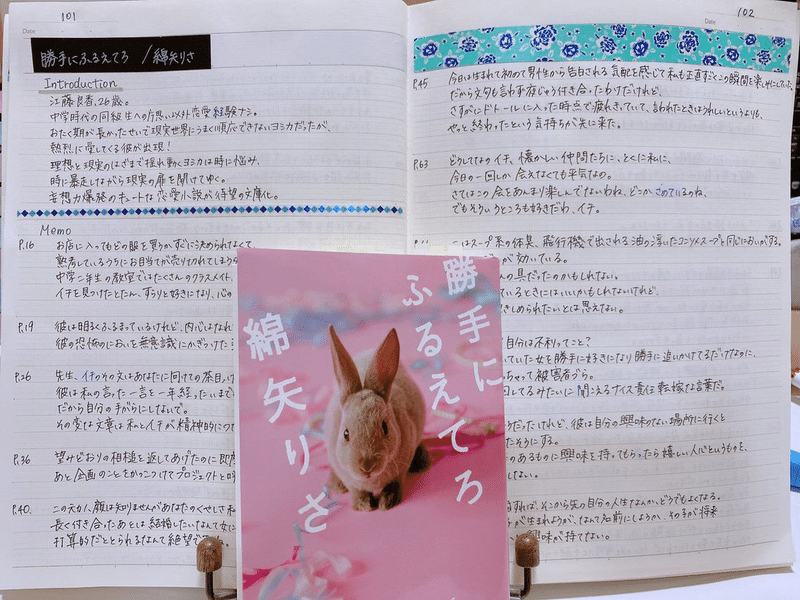 101
Date
勝手にふるえてろ / 綿矢りさ
Introduction
江藤良香、26歳。
中学時代の同級生への片思い以外恋愛経験ナシ。
おたく期が長かったせいで現実世界にうまく順応できないヨシカだったが、
熱烈に愛してくる彼が出現!
理想と現実のはざまで揺れ動くヨシカは時に悩み、
時に暴走しながら現実の扉を開けてゆく。
妄想力爆発のキュートな恋愛小説が待望の文庫化。
Memo
P.16 お店に入ってもどの服を買うかすぐに決められなくて、
熟考しているうちにお目当てが売り切れてしまう
中学二年生の教室ではたくさんのクラスメイト
イチを見つけたとたん、すらりと好きになり、心の
P.19 彼は明るくふるまっているけれど、内心はなれ
彼の恐怖のにおいを無意識にかぎつけた
P.26 先生、イチのその文はあなたに向けての
彼は私の言った一言を一年経ったいまで
だから自分の手がらにしないで。
その変な文章は私とイチが精神的につ
P.36 望みどおりの相槌を返してあげたのに即座
あと企画のことをかっこつけてプロジェクトと
P.40.
長く付き合ったあとは結婚したいなんて女に
打算的だととられるなんて絶望で
102
Date
P.45 今日は生まれて初めて男性から告白される気配を感じて私も正直すごくこの瞬間を楽しみにしていた。
だから文句も言わず夜じゅう付き合ったわけだけれど、
さすがにドトールに入った時点で疲れきっていて、言われたときはうれしいというよりも、
やっと終わったという気持ちが先に来た。
P.63 どうしてなのイチ、懐かしい仲間たちに、とくに私に、
今日の一回しか会えなくても平気なの。
さてはこの会をあんまり楽しんでないわね、どこかさめているのね、
でもそういうところも好きだわ、イチ。
はスープ系の体臭、飛行機で出される油の浮いたコンソメスープと同じにおいがする。
が効いている。
の具だったのかもしれない。
ているときにはいいかもしれないけれど、
きしめられたいとは思えない。
自分は不利ってこと?
ていた女を勝手に好きになり勝手に追いかけてるだけなのに、
ちゃって被害者づら。
してるみたいに聞こえるナイス責任転嫁な言葉だ。
うだったけれど、彼は自分の興味のない場所に行くと
たそうにする。
のあるものに興味を持ってもらったら嬉しい人心というものを、
しない。
すれば、そこから先の自分の人生なんか、どうでもよくなる。
が生まれようが、なんて名前にしようか、その子が将来
興味が持てない。
勝手に
ふるえてろ
綿矢りさ